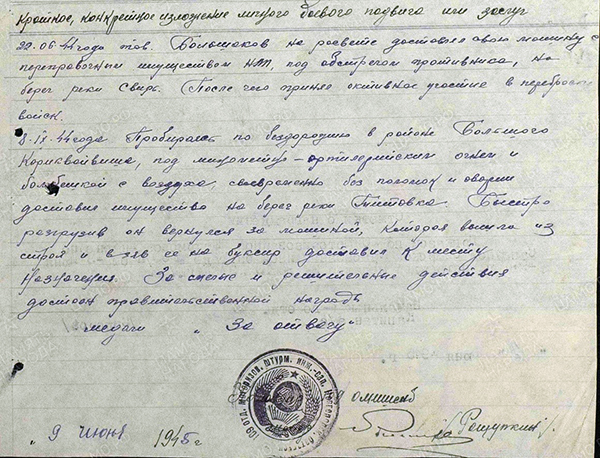 Краткое, конкретное изложение личного боевого подвига или заслуг
22.06.44 года тов. Большаков на рассвете доставил свою машину с
переправочным имуществом НЛП, под обстрелом противника, на
берег реки Свирь. После чего принял активное участие в переброске
войск.
8.IX.44 года Пробираясь по бездорожию в районе Большого
под минометно-артилерийским огнем и
бомбежкой с воздуха, своевременно без поломок и аварий
доставил имущество на берег реки Титовка. Быстро
разгрузив он вернулся за машиной, которая вышла из
строя и взяв ее на буксир доставил к месту
назначения. За смелые и решительные действия
достоин правительственной награды
медали "За отвагу"
109 отд. моторизов. штурм. инж.-сап.
Решупкин
"9" июня 1945 г